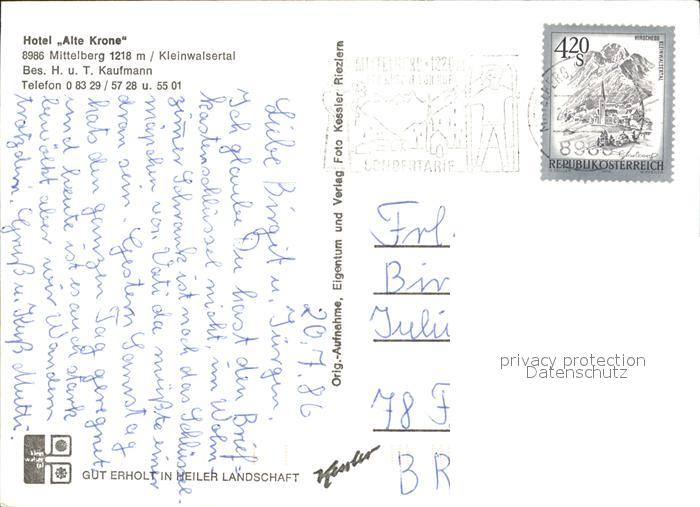 Hotel „Alte Krone“
8986 Mittelberg 1218 m / Kleinwalsertal
Bes. H. u. T. Kaufmann
Telefon 0 83 29 / 57 28 u. 55 01
20.7.86
Liebe Birgit u. Jürgen,
Ich glaube Du hast den Brief=
kastenschlüssel nicht, im Wohn-
zimmer Schrank ist noch das Schlüssel-
mäpchen von Vati da müßte einer
dran sein. Gestern Samstag
hats den ganzen Tag geregnet
und heute ist es auch stark
bewölkt aber wir Wandern
trotzdem. Gruß u. Kuß Mutti.
GUT ERHOLT IN HEILER LANDSCHAFT
Orig.-Aufnahme, Eigentum und Verlag Foto Kessler Riezlern
Kessler
SONDERTARIF
8986
HIRSCHEGG
KLEINWALSERTAL
4.20
S
REPUBLIK ÖSTERREICH
Frl.
Bir
Juliu
78 F
BR
privacy protection
Datenschutz